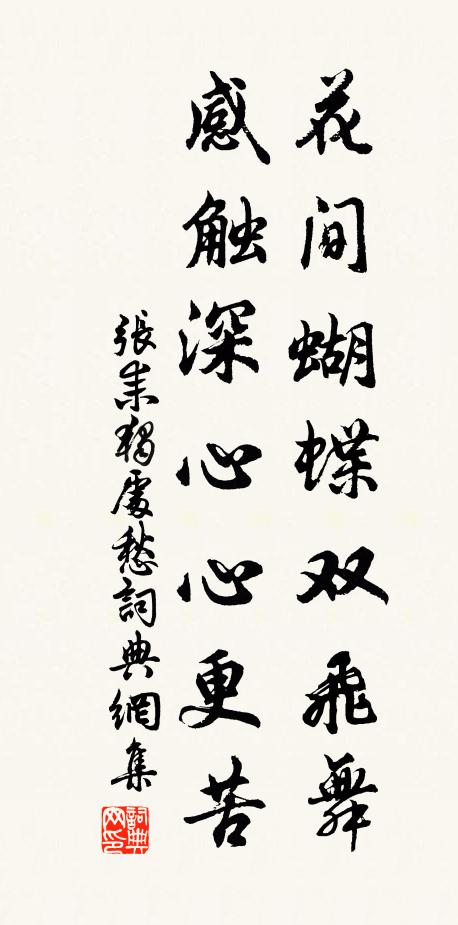 花间蝴蝶双飛舞
感触深心心更苦
張耒獨處愁詞典網集
詞典网印